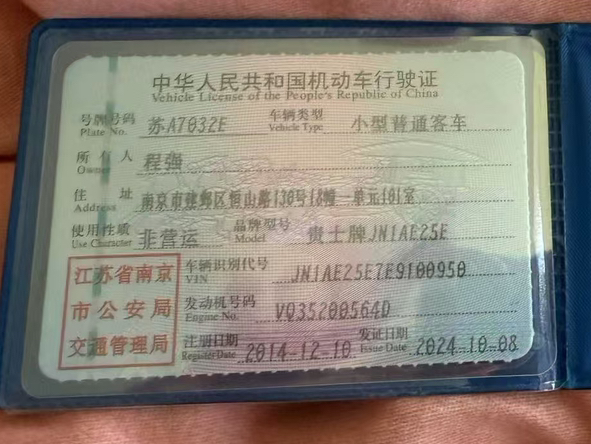 中华人民共和国机动车行驶证
Vehicle License of the People's Republic of China
号牌号码 苏A7032E 车辆类型 小型普通客车
Plate No. Vehicle Type
所有人 程强
Owner
住址 南京市建邺区恒山路130号18幢一单元101室
Address
使用性质 非营运 品牌型号 贵士牌JN1AE25E
Use Character Model
江苏省南京
市公安局
交通管理局
车辆识别代号 JN1AE25E7E9100950
VIN
发动机号码 VQ35200564D
Engine No.
注册日期 2014-12-10 发证日期 2024-10-08
Register Date Issue Date